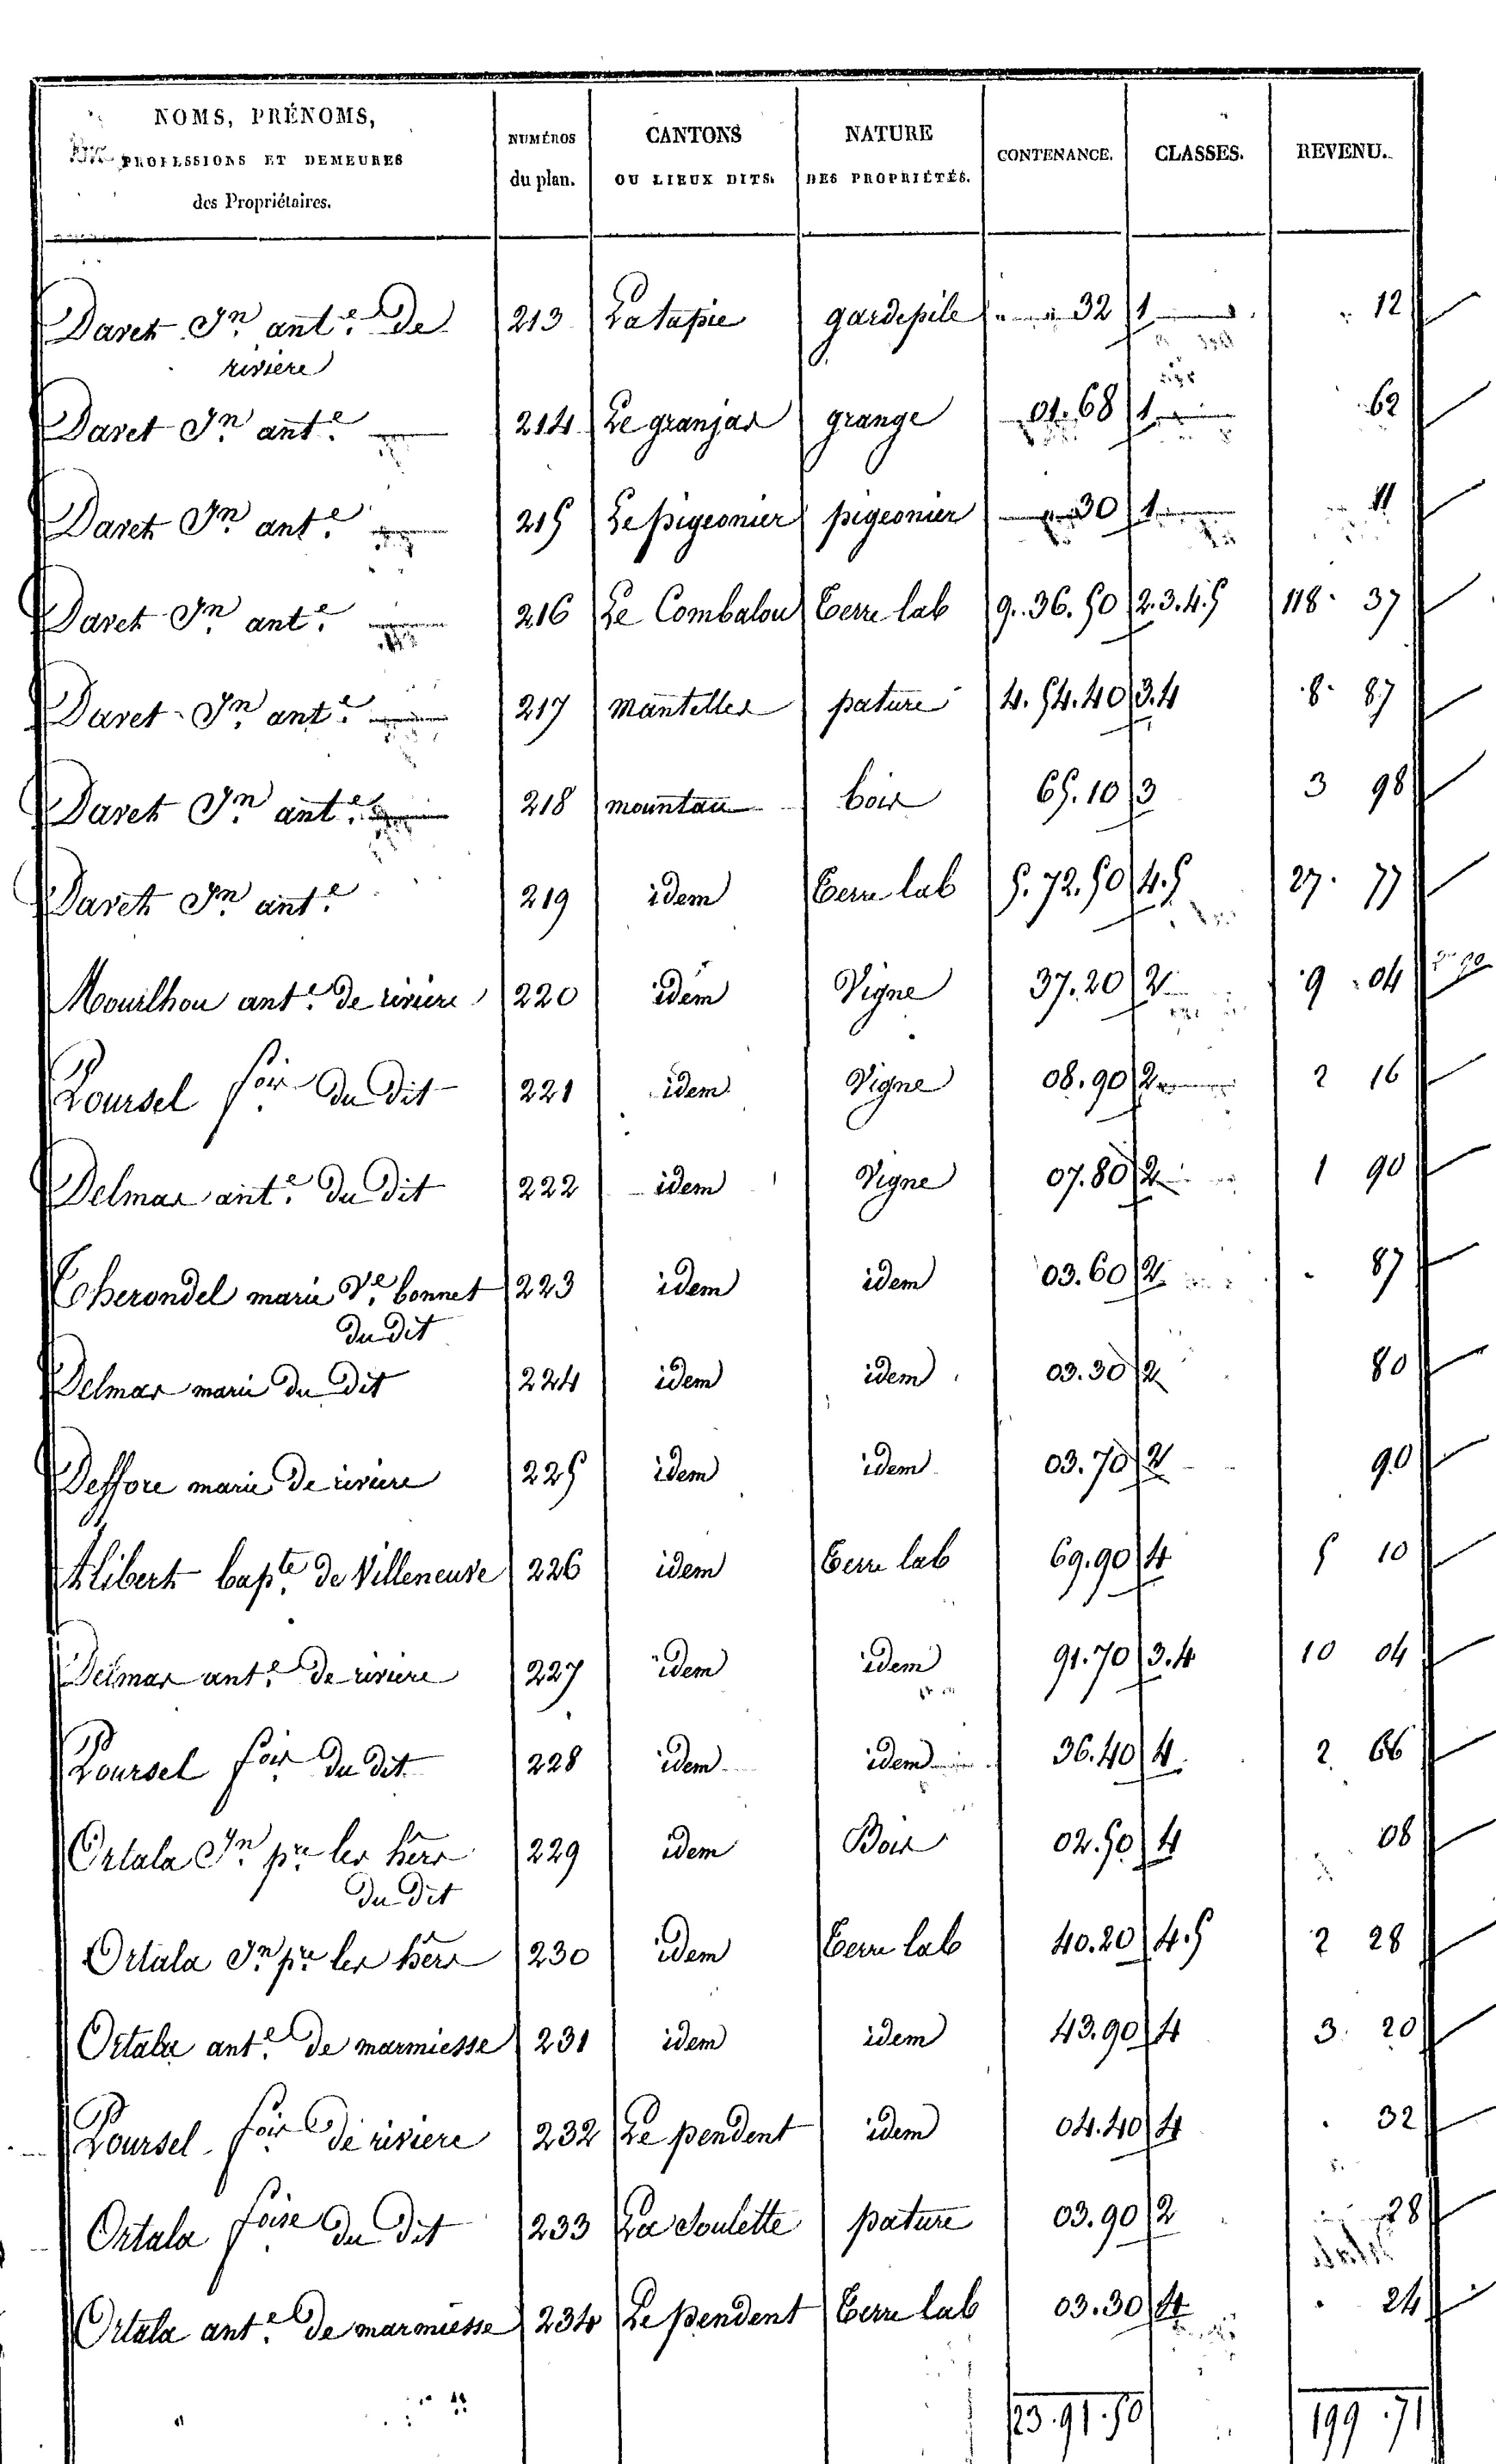 NOMS, PRÉNOMS, PROFESSIONS ET DEMEURES des Propriétaires. NUMÉROS du plan. CANTONS OU LIEUX DITS. NATURE DES PROPRIÉTÉS. CONTENANCE. CLASSES. REVENU.
Daret Jn ante. De 213 Latapie gardepile 32 1 12
riviere
Daret Jn ante. 214 Le granjas grange 01.68 1 62
Daret Jn ante. 215 Le pigeonier pigeonier 30 1 11
Daret Jn ante. 216 Le Combalou Terre lab 9.36.50 2.3.4.5 118 37
Daret Jn ante. 217 mantelles pature 4.54.40 3.4 8 87
Daret Jn ante. 218 mountau bois 65.10 3 3 98
Daret Jn ante. 219 idem Terre lab 5.72.50 4.5 27 77
Mourlhou ante. de riviere 220 idem Vigne 37.20 2 9 04
Loursel fois du dit 221 idem Vigne 08.90 2 2 16
Delmas ante. du dit 222 idem Vigne 07.80 2 1 90
Therondel marie Ve. bonnet 223 idem idem 03.60 2 87
du dit
Delmas marie du dit 224 idem idem 03.30 2 80
Deffore marie de riviere 225 idem idem 03.70 2 90
Alibert bapte. de Villeneuve 226 idem Terre lab 69.90 4 5 10
Delmas ante. de riviere 227 idem idem 91.70 3.4 10 04
Loursel fois du dit 228 idem idem 36.40 4 2 66
Ortala Jn pre les hers 229 idem Bois 02.50 4 08
du dit
Ortala Jn pre les hers 230 idem Terre lab 40.20 4.5 2 28
Ortala ante. de marmiesse 231 idem idem 43.90 4 3 20
Loursel fois de riviere 232 Le pendent idem 04.40 4 32
Ortala foise du dit 233 La Soulette pature 03.90 2 28
Ortala ante. de marmiesse 234 Le pendent Terre lab 03.30 4 24
23.91.50 199.71